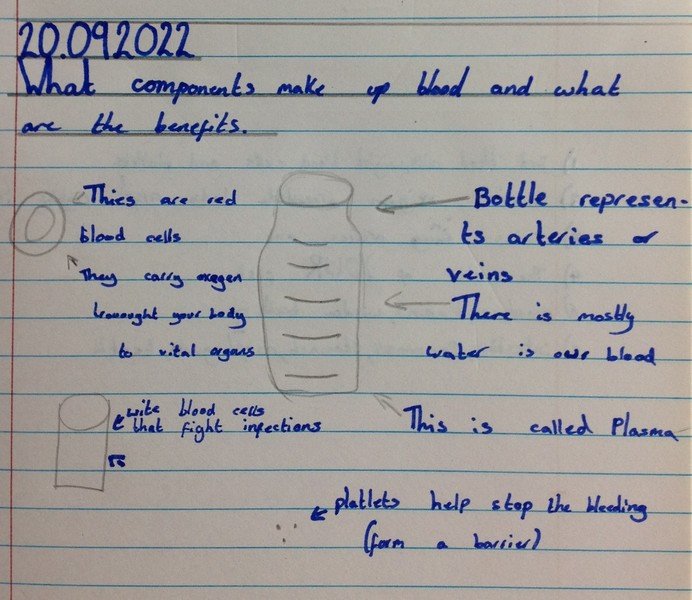 20.09.2022
What components make up blood and what
are the benefits.
Thies are red
blood cells
They carry oxegen
trouought your body
to vital organs
Bottle represen-
ts arteries or
veins
There is mostly
water is owr blood
This is called Plasma
wite blood cells
that fight infections
platlets help stop the bleeding
(form a barrier)